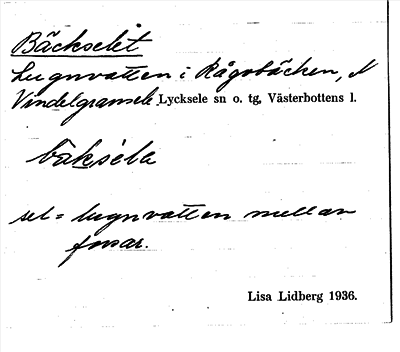 Bäckselet
Lugnvatten i Rågobäcken, N
Vindelgransele Lycksele sn o. tg, Västerbottens l.
bäksela
sel = lugnvatten mellan
forsar.
Lisa Lidberg 1936.